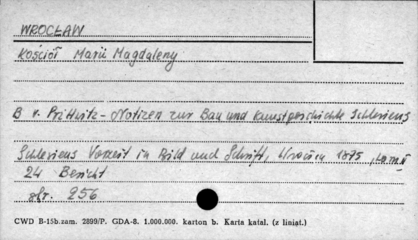 WROCŁAW
Kościół Marii Magdaleny
B v. Prittwitz - Notizen zur Bau und Kunstgeschichte Schlesiens
Schlesiens Vorzeit in Bild und Schrift, 1875,
24 Bericht
str. 256
CWD B-15b.zam. 2899/P. GDA-8. 1.000.000. karton b. Karta katal. (z liniat.)